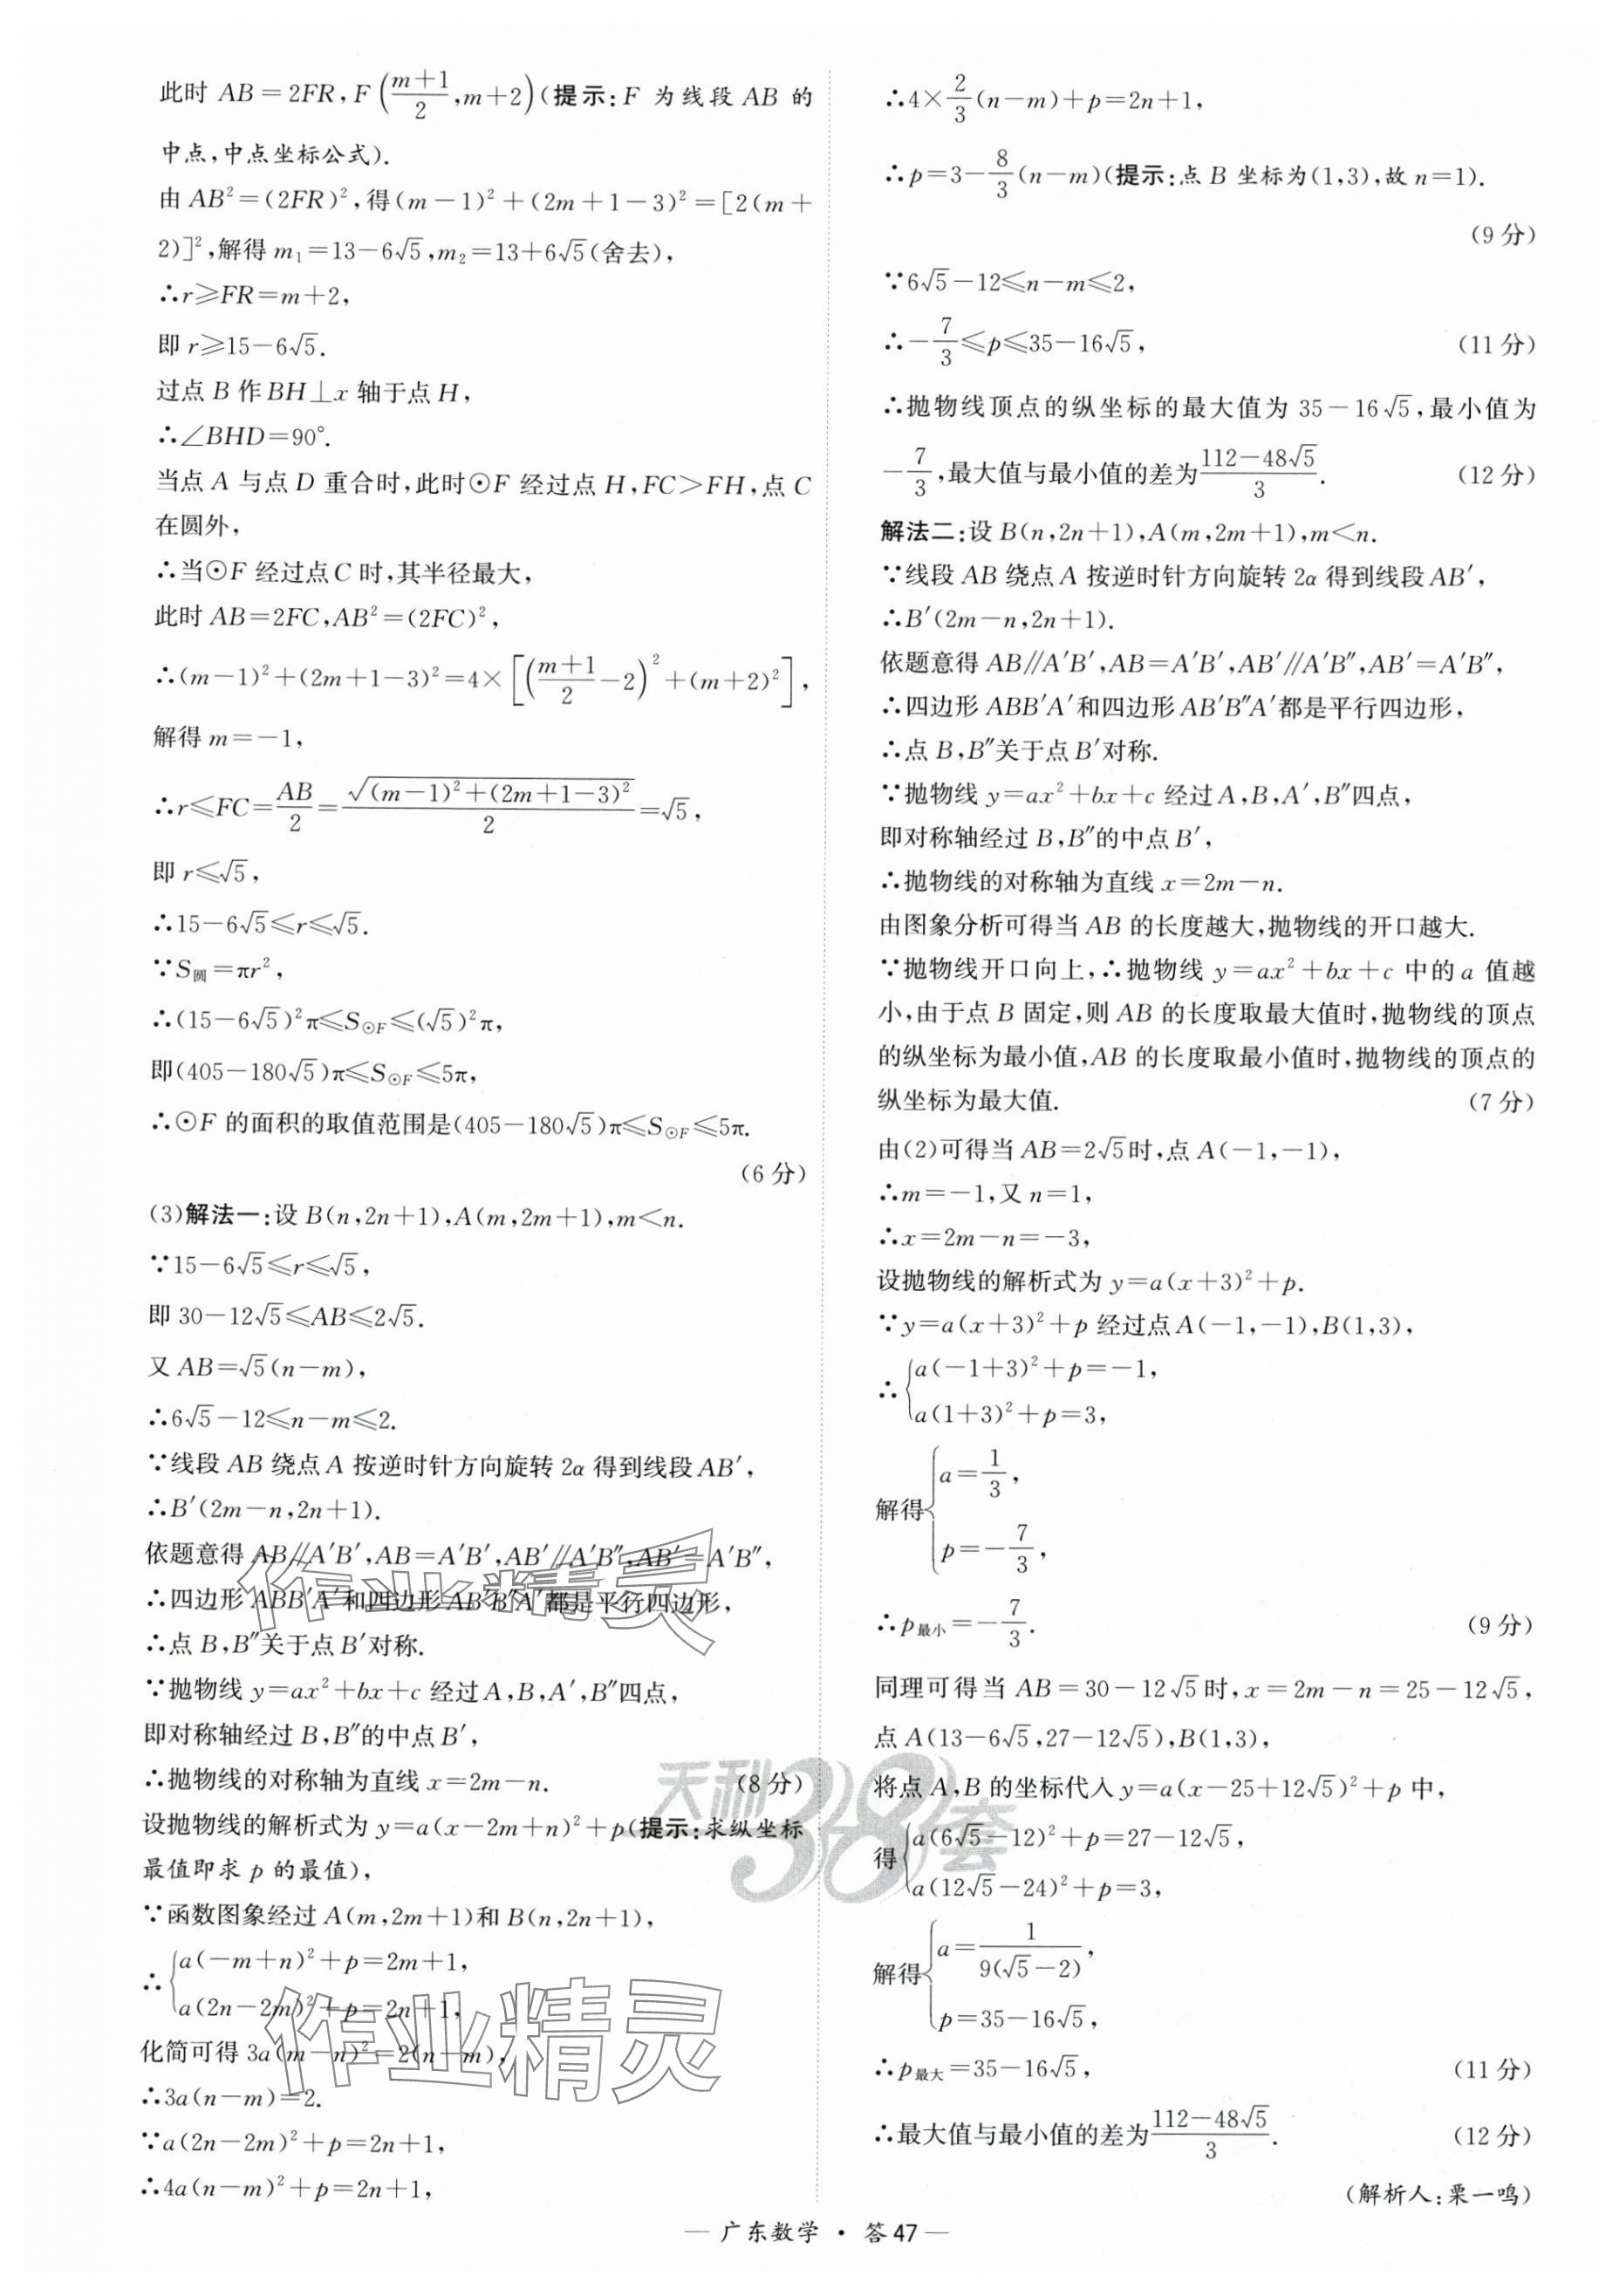 此时 AB=2FR,F((m+1)/2,m+2)(提示:F 为线段 AB 的
中点,中点坐标公式).
由 AB²=(2FR)²,得(m-1)²+(2m+1-3)²=[2(m+
2)]²,解得 m₁=13-6√5,m₂=13+6√5(舍去),
∴r≥FR=m+2,
即 r≥15-6√5.
过点 B 作BH⊥x 轴于点 H,
∴∠BHD=90°.
当点 A 与点 D 重合时,此时⊙F 经过点 H,FC>FH,点 C
在圆外,
∴当⊙F 经过点C 时,其半径最大,
此时 AB=2FC,AB²=(2FC)²,
∴(m-1)²+(2m+1-3)²=4×[((m+1)/2-2)²+(m+2)²],
解得 m=-1,
∴r≤FC=AB/2=√((m-1)²+(2m+1-3)²)/2=√5,
即 r≤√5,
∴15-6√5≤r≤√5.
∵S圆=πr²,
∴(15-6√5)²π≤S⊙F≤(√5)²π,
即(405-180√5)π≤S⊙F≤5π,
∴⊙F 的面积的取值范围是(405-180√5)π≤S⊙F≤5π.
(6 分)
(3)解法一:设 B(n,2n+1),A(m,2m+1),m<n.
∵15-6√5≤r≤√5,
即 30-12√5≤AB≤2√5.
又 AB=√5(n-m),
∴6√5-12≤n-m≤2.
∵线段 AB 绕点 A 按逆时针方向旋转 2α 得到线段AB′,
∴B′(2m-n,2n+1).
依题意得 AB∥A′B′,AB=A′B′,AB′∥A′B″,AB′=A′B″,
∴四边形 ABB′A′和四边形 AB′B″A′都是平行四边形,
∴点 B,B″关于点 B′对称.
∵抛物线 y=ax²+bx+c 经过 A,B,A′,B″四点,
即对称轴经过 B,B″的中点 B′,
∴抛物线的对称轴为直线 x=2m-n. (8 分)
设抛物线的解析式为 y=a(x-2m+n)²+p(提示:求纵坐标
最值即求 p 的最值),
∵函数图象经过 A(m,2m+1)和 B(n,2n+1),
∴{a(-m+n)²+p=2m+1,
a(2n-2m)²+p=2n+1,
化简可得 3a(m-n)²=2(n-m),
∴3a(n-m)=2.
∵a(2n-2m)²+p=2n+1,
∴4a(n-m)²+p=2n+1,
∴4×2/3(n-m)+p=2n+1,
∴p=3-8/3(n-m)(提示:点 B 坐标为(1,3),故 n=1).
(9 分)
∵6√5-12≤n-m≤2,
∴-7/3≤p≤35-16√5, (11 分)
∴抛物线顶点的纵坐标的最大值为 35-16√5,最小值为
-7/3,最大值与最小值的差为(112-48√5)/3. (12 分)
解法二:设 B(n,2n+1),A(m,2m+1),m<n.
∵线段 AB 绕点 A 按逆时针方向旋转 2α 得到线段 AB′,
∴B′(2m-n,2n+1).
依题意得 AB∥A′B′,AB=A′B′,AB′∥A′B″,AB′=A′B″,
∴四边形 ABB′A′和四边形 AB′B″A′都是平行四边形,
∴点 B,B″关于点 B′对称.
∵抛物线 y=ax²+bx+c 经过 A,B,A′,B″四点,
即对称轴经过 B,B″的中点 B′,
∴抛物线的对称轴为直线 x=2m-n.
由图象分析可得当 AB 的长度越大,抛物线的开口越大.
∵抛物线开口向上,∴抛物线 y=ax²+bx+c 中的 a 值越
小,由于点 B 固定,则 AB 的长度取最大值时,抛物线的顶点
的纵坐标为最小值,AB 的长度取最小值时,抛物线的顶点的
纵坐标为最大值. (7 分)
由(2)可得当 AB=2√5时,点 A(-1,-1),
∴m=-1,又 n=1,
∴x=2m-n=-3,
设抛物线的解析式为 y=a(x+3)²+p.
∵y=a(x+3)²+p 经过点 A(-1,-1),B(1,3),
∴{a(-1+3)²+p=-1,
a(1+3)²+p=3,
解得{a=1/3,
p=-7/3,
∴p最小=-7/3. (9 分)
同理可得当 AB=30-12√5时,x=2m-n=25-12√5,
点 A(13-6√5,27-12√5),B(1,3),
将点 A,B 的坐标代入 y=a(x-25+12√5)²+p 中,
得{a(6√5-12)²+p=27-12√5,
a(12√5-24)²+p=3,
解得{a=1/(9(√5-2)),
p=35-16√5,
∴p最大=35-16√5, (11 分)
∴最大值与最小值的差为(112-48√5)/3. (12 分)
(解析人:栗一鸣)
— 广东数学 · 答 47 —
作业精灵
天利38套
作业精灵